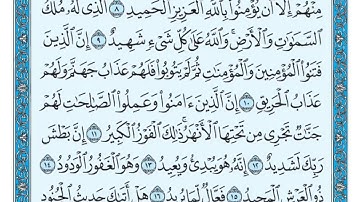 مِنْهُمْ إِلَّا أَن يُؤْمِنُوا۟ بِٱللَّهِ ٱلْعَزِيزِ ٱلْحَمِيدِ ٨ ٱلَّذِى لَهُۥ مُلْكُ
ٱلسَّمَٰوَٰتِ وَٱلْأَرْضِ ۚ وَٱللَّهُ عَلَىٰ كُلِّ شَىْءٍ شَهِيدٌ ٩ إِنَّ ٱلَّذِينَ
فَتَنُوا۟ ٱلْمُؤْمِنِينَ وَٱلْمُؤْمِنَٰتِ ثُمَّ لَمْ يَتُوبُوا۟ فَلَهُمْ عَذَابُ جَهَنَّمَ وَلَهُمْ
عَذَابُ ٱلْحَرِيقِ ١٠ إِنَّ ٱلَّذِينَ ءَامَنُوا۟ وَعَمِلُوا۟ ٱلصَّٰلِحَٰتِ لَهُمْ
جَنَّٰتٌ تَجْرِى مِن تَحْتِهَا ٱلْأَنْهَٰرُ ۚ ذَٰلِكَ ٱلْفَوْزُ ٱلْكَبِيرُ ١١ إِنَّ بَطْشَ
رَبِّكَ لَشَدِيدٌ ١٢ إِنَّهُۥ هُوَ يُبْدِئُ وَيُعِيدُ ١٣ وَهُوَ ٱلْغَفُورُ ٱلْوَدُودُ ١٤
ذُو ٱلْعَرْشِ ٱلْمَجِيدُ ١٥ فَعَّالٌ لِّمَا يُرِيدُ ١٦ هَلْ أَتَىٰكَ حَدِيثُ ٱلْجُنُودِ